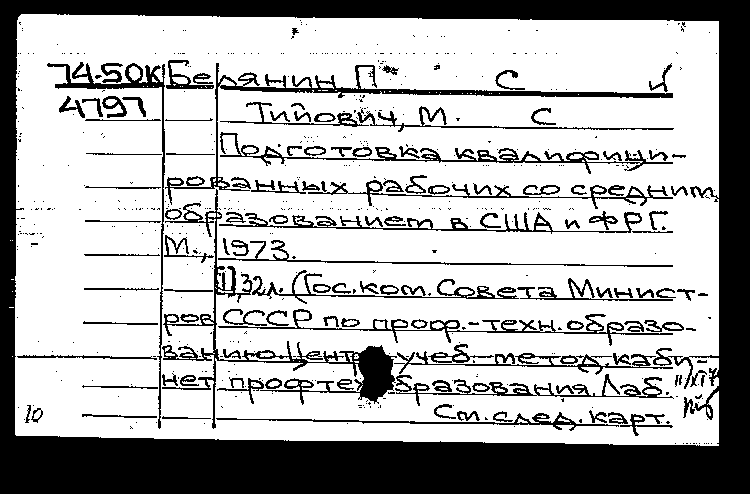 74-50К Белянин, П С и
4797 Тийович, М. С
Подготовка квалифици-
рованных рабочих со средним
образованием в США и ФРГ.
М., 1973.
[1], 32л. (Гос. ком. Совета Минист-
ров СССР по проф.-техн. образо-
ванию. Центр учеб.-метод. каби-
нет профтехобразования. Лаб.
См. след. карт.
10